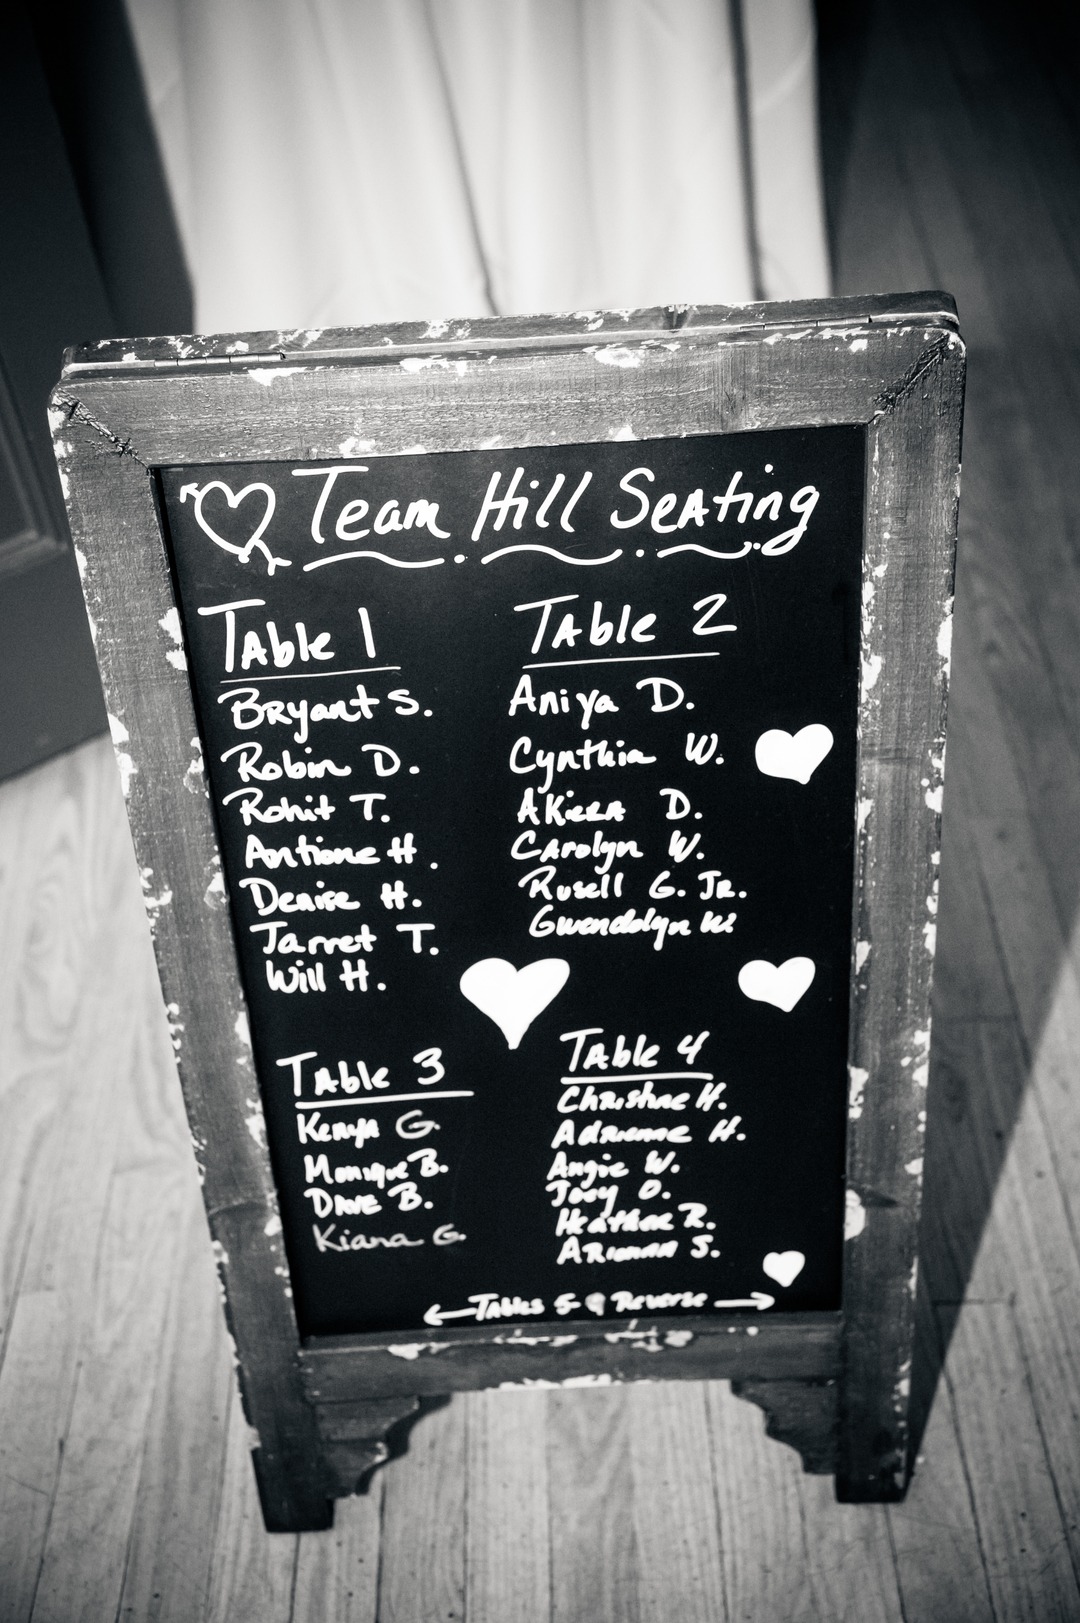 Team Hill Seating
Table 1
Bryant S.
Robin D.
Rohit T.
Antione H.
Denise H.
Jarret T.
Will H.
Table 2
Aniya D.
Cynthia W.
Akiera D.
Carolyn W.
Rusell G. Jr.
Gwendolyn W.
Table 3
Kenya G.
Monique B.
Dave B.
Kiana G.
Table 4
Christine H.
Adrienne H.
Angie W.
Joey O.
Heather R.
Arianna S.
Tables 5- Reverse